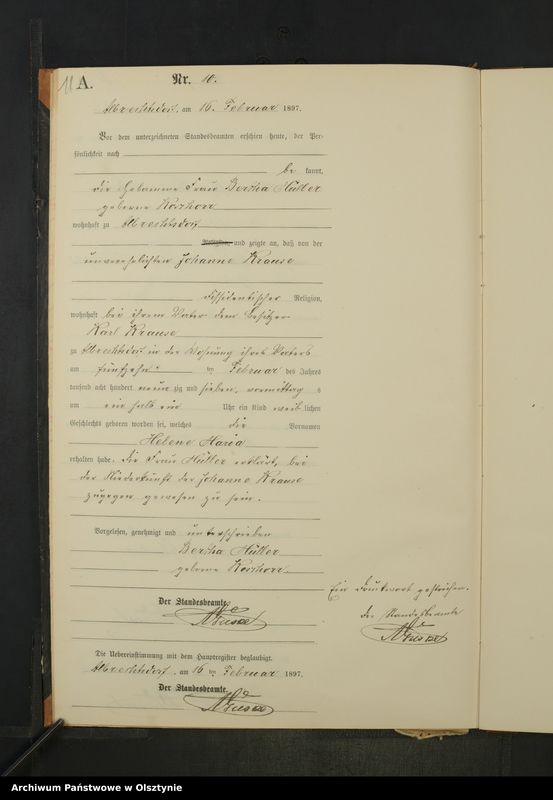 11 A. Nr. 10.
Albrechtsdorf, am 16. Februar 1897.
Vor dem unterzeichneten Standesbeamten erschien heute, der Per-
sönlichkeit nach
be kannt,
die Hebamme Frau Bertha Hüller
geborne
wohnhaft zu Albrechtsdorf
Religion, und zeigte an, daß von der
unverehelichten Johanne Krause
dissidentischer Religion,
wohnhaft bei ihrem Vater dem Besitzer
Karl Krause
zu Albrechtsdorf in der Wohnung ihres Vaters
am fünfzehnten Februar des Jahres
tausend acht hundert neun zig und sieben, vormittag s
um ein halb ein Uhr ein Kind weib lichen
Geschlechts geboren worden sei, welches die Vornamen
Helene Maria
erhalten habe. Die Frau Hüller erklärt, bei
der Niederkunft der Johanne Krause
zugegen gewesen zu sein.
Vorgelesen, genehmigt und unterschrieben
Bertha Hüller
geborne
Ein Druckwort gestrichen.
Der Standesbeamte.
Der Standesbeamte
Die Uebereinstimmung mit dem Hauptregister beglaubigt.
Albrechtsdorf, am 16 ten Februar 1897.
Der Standesbeamte.
Archiwum Państwowe w Olsztynie